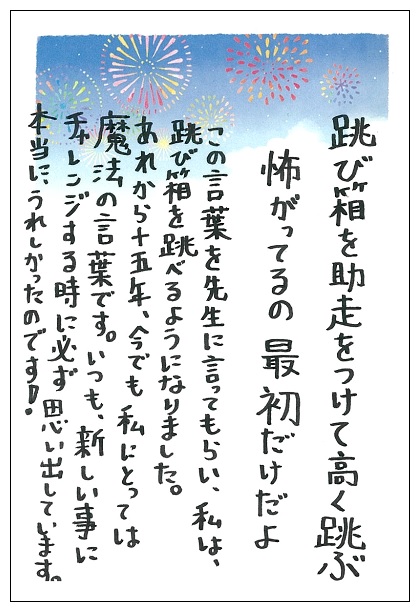 跳び箱を助走をつけて高く跳ぶ
怖がってるの 最初だけだよ
この言葉を先生に言ってもらい、私は、
跳び箱を跳べるようになりました。
あれから十五年、今でも私にとっては
魔法の言葉です。いつも、新しい事に
チャレンジする時に必ず思い出しています。
本当に、うれしかったのです!